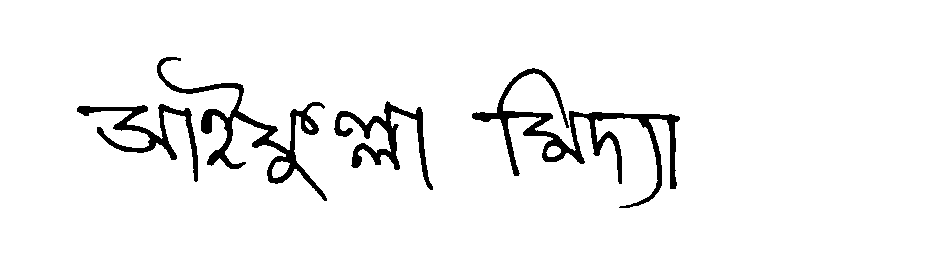 আইয়ুল্লা মিদ্যা